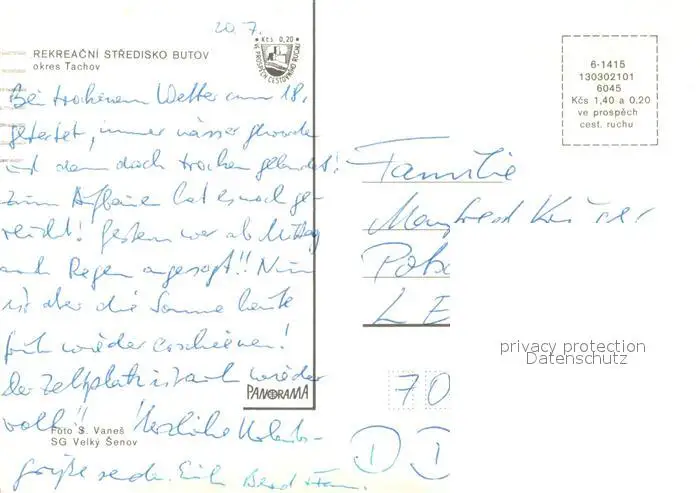 20.7.
REKREAČNÍ STŘEDISKO BUTOV
okres Tachov
Kčs 0,20
VE PROSPĚCH CESTOVNÍHO RUCHU
6-1415
130302101
6045
Kčs 1,40 a 0.20
ve prospěch
cest. ruchu
Bei trockenem Wetter am 18.
gestartet, immer nasser geworden
und dann doch trocken gelandet!
zum Aufbauen hat es noch ge-
reicht! Gestern war ab Mittag
auch Regen angesagt!! Nun
ist aber die Sonne heute
früh wieder erschienen!
Der Zeltplatz ist auch wieder
voll!! Herzliche Urlaubs-
grüße senden Euch Bernd
PANORAMA
Foto S. Vaneš
SG Velký Šenov
Familie
Manfred
LE
privacy protection
Datenschutz
70
D D